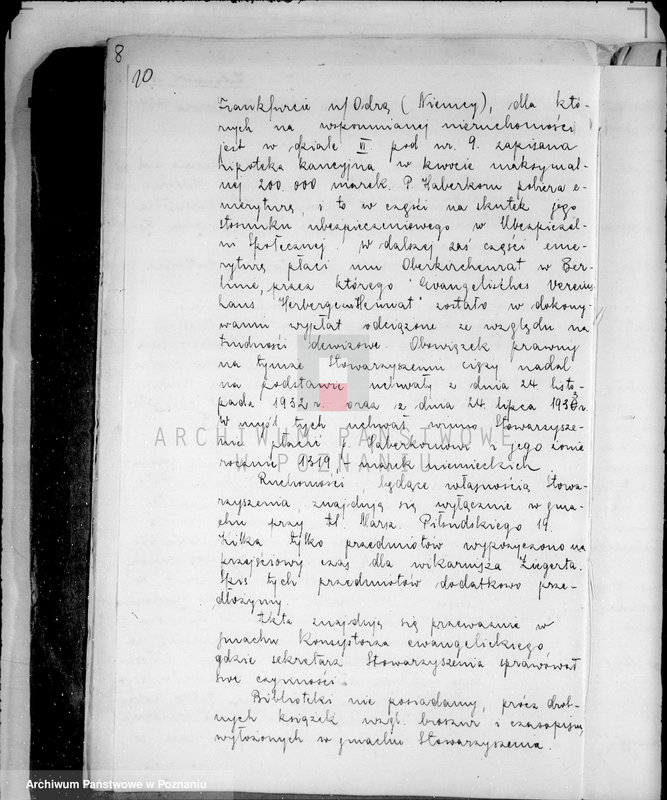 8
10
Frankfurcie n/Odrą (Niemcy), dla któ-
rych na wspomnianej nieruchomości
jest w dziale III. pod nr. 9. zapisana
hipoteka kaucyjna w kwocie maksymal-
nej 200.000 marek. P. Haberkorn pobiera e-
meryturę, i to w części na skutek jego
stosunku ubezpieczeniowego w Ubezpieczal-
ni Społecznej w dalszej zaś części eme-
ryturę płaci mu Oberkirchenrat w Ber-
linie, przez którego "Evangelisches Vereins
haus Herberge Heimat" zostało w dokony-
waniu wypłat odciążone ze względu na
trudności dewizowe. Obowiązek prawny
na tymże Stowarzyszeniu ciąży nadal
na podstawie uchwały z dnia 24 listo-
pada 1932 r. oraz z dnia 24 lipca 1933 r.
W myśl tych uchwał winno Stowarzysze-
nie płacić Haberkornowi i jego żonie
rocznie 1319, marek niemieckich
Ruchomości będące własnością Stowa-
rzyszenia, znajdują się wyłącznie w gma-
chu przy Al. Marsz. Piłsudskiego 19.
Kilka tylko przedmiotów wypożyczono na
przejściowy czas dla wikarjusza Ziegerta.
Spis tych przedmiotów dodatkowo prze-
dłożymy.
Akta znajdują się przeważnie w
gmachu Konsystorza ewangelickiego,
gdzie sekretarz Stowarzyszenia sprawował
swe czynności.
Biblioteki nie posiadamy, prócz drob-
nych książek wzgl. broszur i czasopism,
wyłożonych w gmachu Stowarzyszenia.
ARCHIWUM PAŃSTWOWE
W POZNANIU
Archiwum Państwowe w Poznaniu